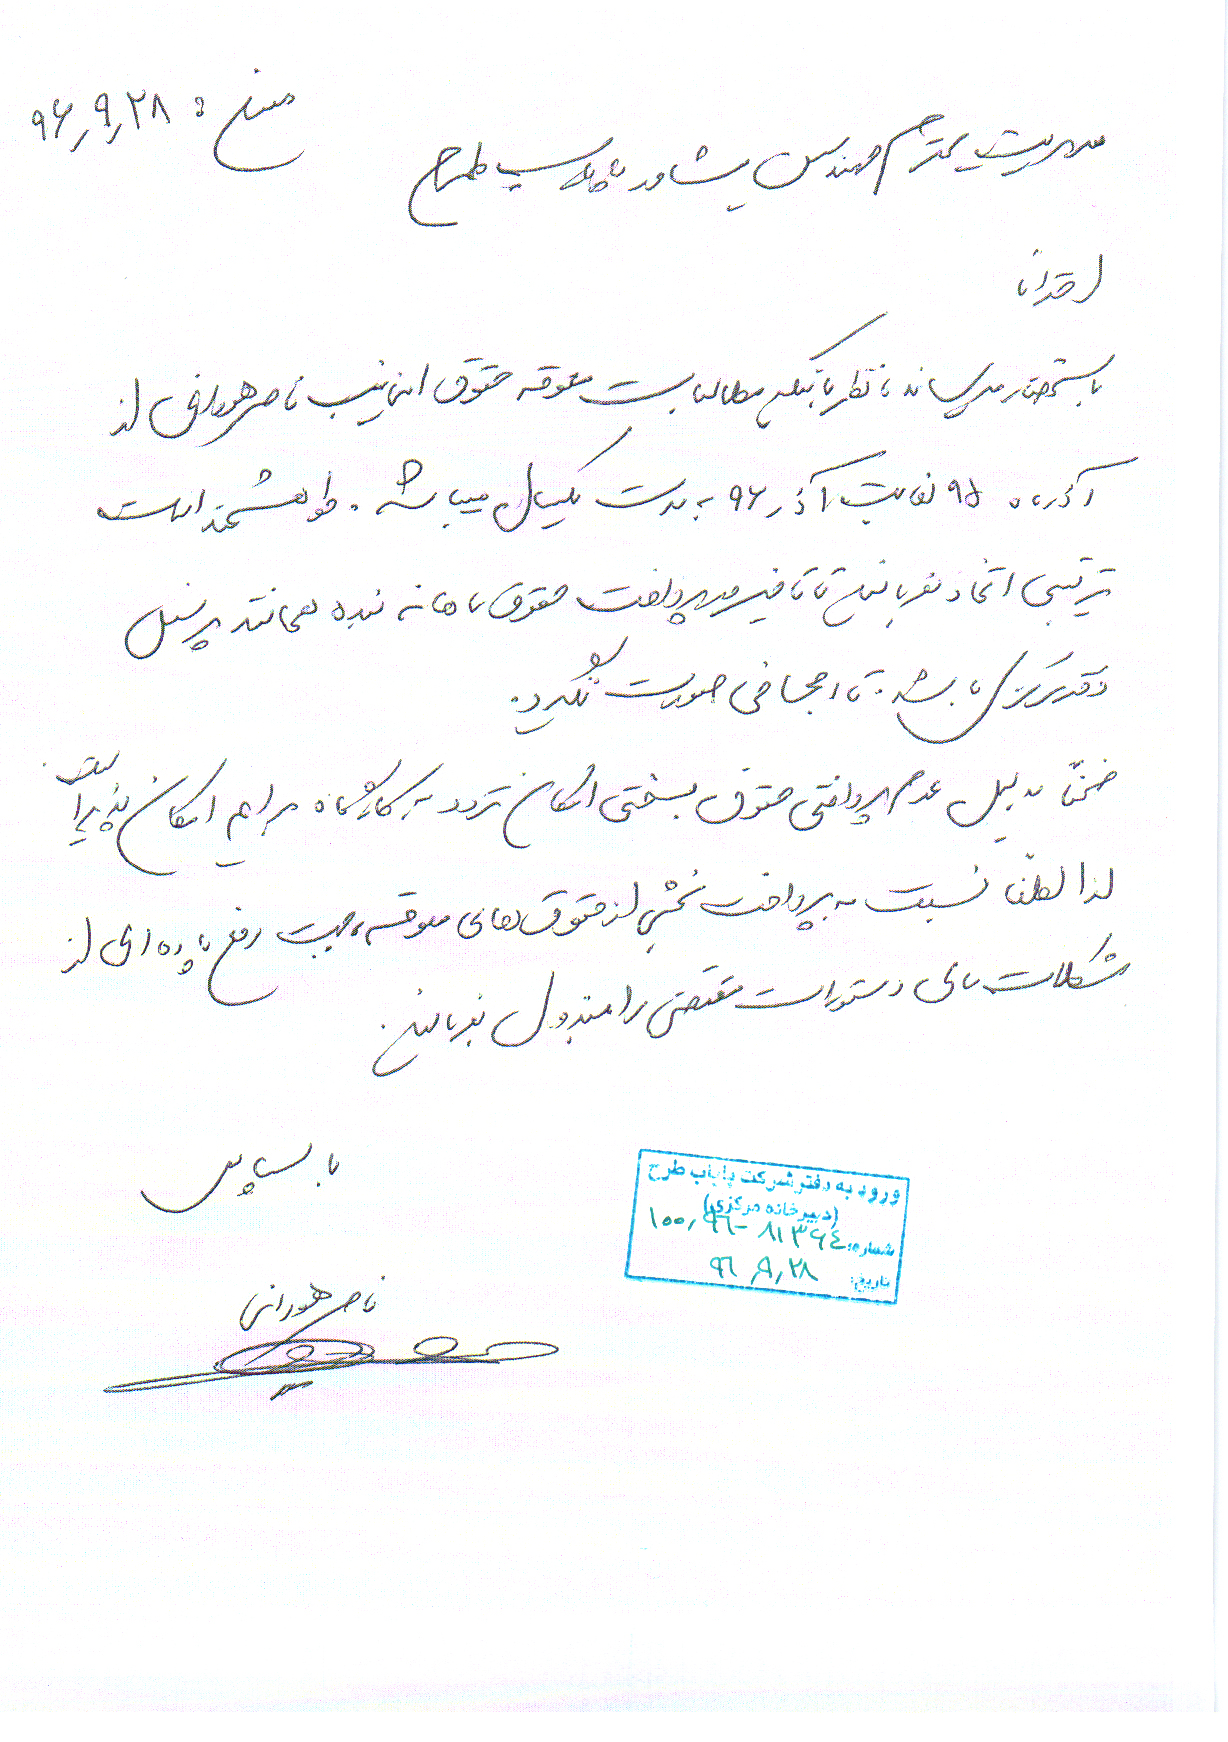 مورخ : ۹۶٫۹٫۲۸
مدیریت محترم مهندسین مشاور پایاب طرح
احتراما
باستحضار میرساند با نظر باینکه مطالبات معوقه حقوق اینجانب ناصر هورانی از
آذرماه ۹۵ لغایت آذر ۹۶ به مدت یکسال میباشد . خواهشمند است
ترتیبی اتخاذ بفرمائید تا تاخیر در پرداخت حقوق ماهانه بنده همانند پرسنل
دفتر مرکزی باشد . تا اجحافی صورت نگیرد .
ضمنا بدلیل عدم پرداختی حقوق بسختی امکان تردد به کارگاه برایم امکان پذیر است .
لذا لطفا نسبت به پرداخت بخشی از حقوق های معوقه جهت رفع پاره ای از
مشکلات مالی دستورات مقتضی را مبذول بفرمائید .
با سپاس
ناصر هورانی
ورود به دفتر شرکت پایاب طرح
(دبیرخانه مرکزی)
شماره: ۱۰۰٫۹۶-۸۱۳۶۴
تاریخ: ۹۶٫۹٫۲۸